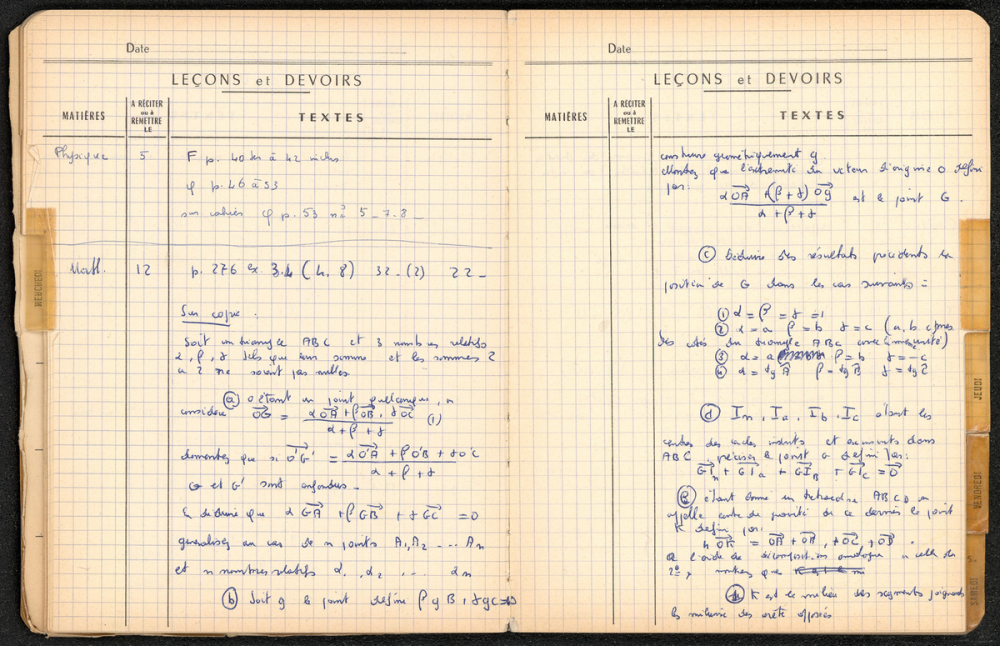 Date
LEÇONS et DEVOIRS
MATIÈRES
A RÉCITER
ou à
REMETTRE
LE
TEXTES
Physique 5 F p. 40 à 42 inclus
φ p. 46 à 53
sur cahier φ p. 53 n° 5-7-8-
Math. 12 p. 276 ex 3.4 (4, 8) 32-(2) 22-
Sur copie.
Soit un triangle ABC et 3 nombres relatifs
α, β, γ tels que leur somme et les sommes 2
à 2 ne soient pas nulles
(a) O étant un point quelconque, on
considère OG = αOA + βOB + γOC / α + β + γ (1)
démontrez que si O'G' = αO'A + βO'B + γO'C / α + β + γ
G et G' sont confondus-
En déduire que αGA + βGB + γGC = 0
généralisez au cas de n points A1, A2 ... An
et n nombres relatifs α1, α2, ... αn
(b) Soit g le point défini βgB + γgC = 0
MERCREDI
Date
LEÇONS et DEVOIRS
MATIÈRES
A RÉCITER
ou à
REMETTRE
LE
TEXTES
construire géométriquement g.
Montrez que l'extrémité du vecteur d'origine O défini
par:
αOA + (β + γ) Og / α + β + γ est le point G.
(c) Déduire des résultats précédents la
position de G dans les cas suivants =
(1) α = β = γ = 1
(2) α = a β = b γ = c (a, b, c
des côtés du triangle ABC avec l'unité)
(3) α = a β = b γ = -c
(4) α = tg A β = tg B γ = tg C
(d) I, Ia, Ib, Ic étant les
centres des cercles inscrits et dans
ABC, préciser le point G défini par:
GI + GIa + GIB + GIC = 0
(e) étant donné un tétraèdre ABCD on
appelle centre de gravité de ce dernier le point
K défini par:
4 OK = OA + OB + OC + OD.
A l'aide de décompositions analogues à celle du
2°, montrez que
K est le milieu des segments joignant
les milieux des arêtes opposées
JEUDI
VENDREDI
SAMEDI